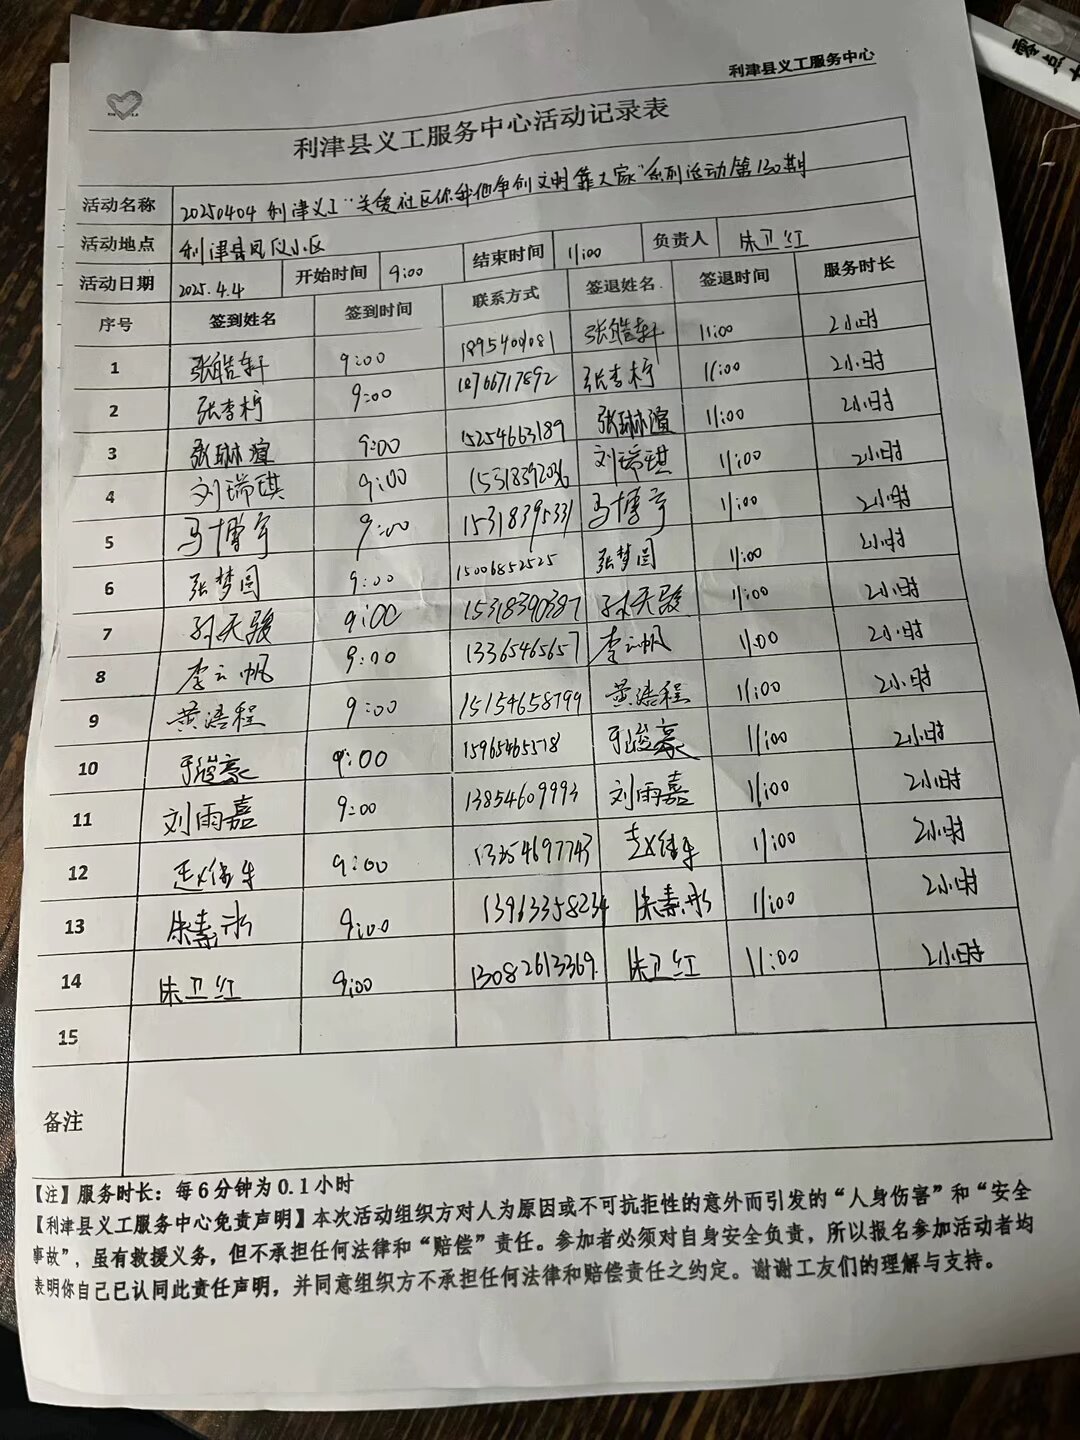 利津县义工服务中心
利津县义工服务中心活动记录表
活动名称 20250404利津义工"关爱社区你我他争创文明靠大家"系列活动第130期
活动地点 利津县凤仪小区
活动日期 2025.4.4 开始时间 9:00 结束时间 11:00 负责人 朱卫红
序号 签到姓名 签到时间 联系方式 签退姓名 签退时间 服务时长
1 张皓轩 9:00 张皓轩 11:00 2小时
2 张李柠 9:00 18766717892 张李柠 11:00 2小时
3 张琳渲 9:00 15254663189 张琳渲 11:00 2小时
4 刘瑞琪 9:00 15318392036 刘瑞琪 11:00 2小时
5 马博宇 9:00 15318395331 马博宇 11:00 2小时
6 张梦圆 9:00 15006852525 张梦圆 11:00 2小时
7 孙天骏 9:00 15318390387 孙天骏 11:00 2小时
8 李云帆 9:00 13365465657 李云帆 11:00 2小时
9 黄浩程 9:00 15154658799 黄浩程 11:00 2小时
10 于滋豪 9:00 15965465518 于滋豪 11:00 2小时
11 刘雨嘉 9:00 13854609993 刘雨嘉 11:00 2小时
12 9:00 13354697743 11:00 2小时
13 朱素冰 9:00 13963358234 朱素冰 11:00 2小时
14 朱卫红 9:00 13082613369 朱卫红 11:00 2小时
15
备注
【注】服务时长：每6分钟为0.1小时
【利津县义工服务中心免责声明】本次活动组织方对人为原因或不可抗拒性的意外而引发的“人身伤害”和“安全
事故”，虽有救援义务，但不承担任何法律和“赔偿”责任。参加者必须对自身安全负责，所以报名参加活动者均
表明你自己已认同此责任声明，并同意组织方不承担任何法律和赔偿责任之约定。谢谢工友们的理解与支持。